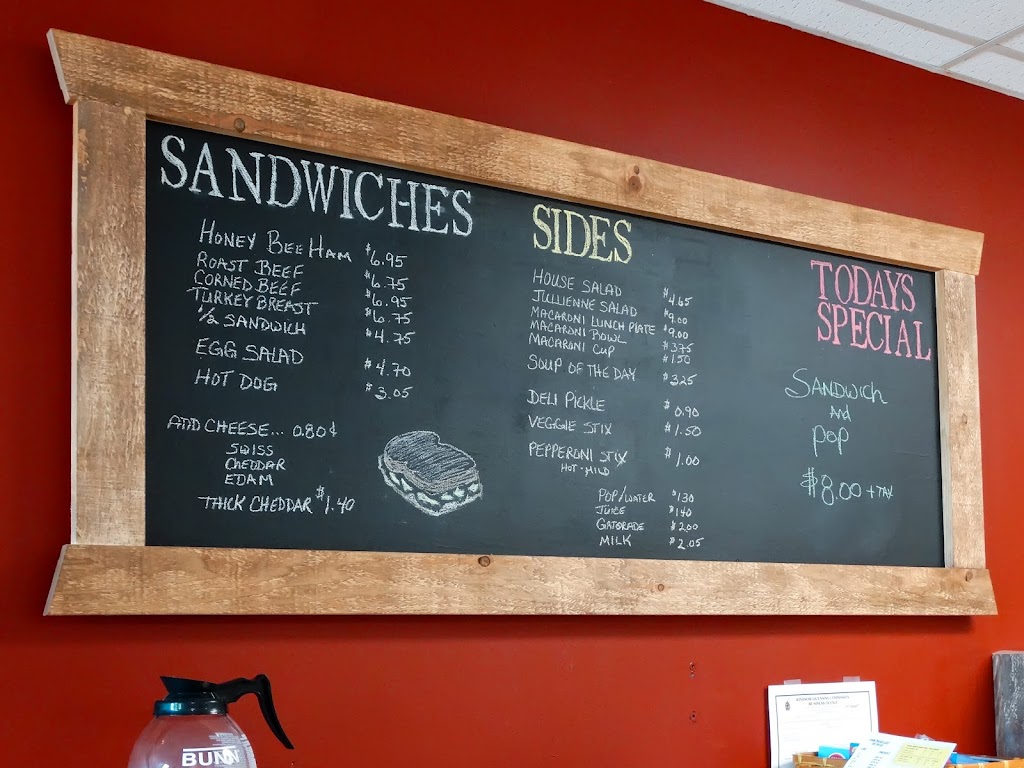 SANDWICHES
HONEY BEE HAM $6.95
ROAST BEEF $6.75
CORNED BEEF $6.95
TURKEY BREAST $6.75
1/2 SANDWICH $4.75
EGG SALAD $4.70
HOT DOG $3.05
ADD CHEESE... 0.80¢
SWISS
CHEDDAR
EDAM
THICK CHEDDAR $1.40
SIDES
HOUSE SALAD $4.65
JULLIENNE SALAD $9.00
MACARONI LUNCH PLATE $9.00
MACARONI BOWL $3.75
MACARONI CUP $1.50
SOUP OF THE DAY $3.25
DELI PICKLE $0.90
VEGGIE STIX $1.50
PEPPERONI STIX $1.00
HOT-MILD
POP/WATER $1.30
JUICE $1.40
GATORADE $2.00
MILK $2.05
TODAYS
SPECIAL
SANDWICH
AND
POP
$8.00 + TAX
BUNN